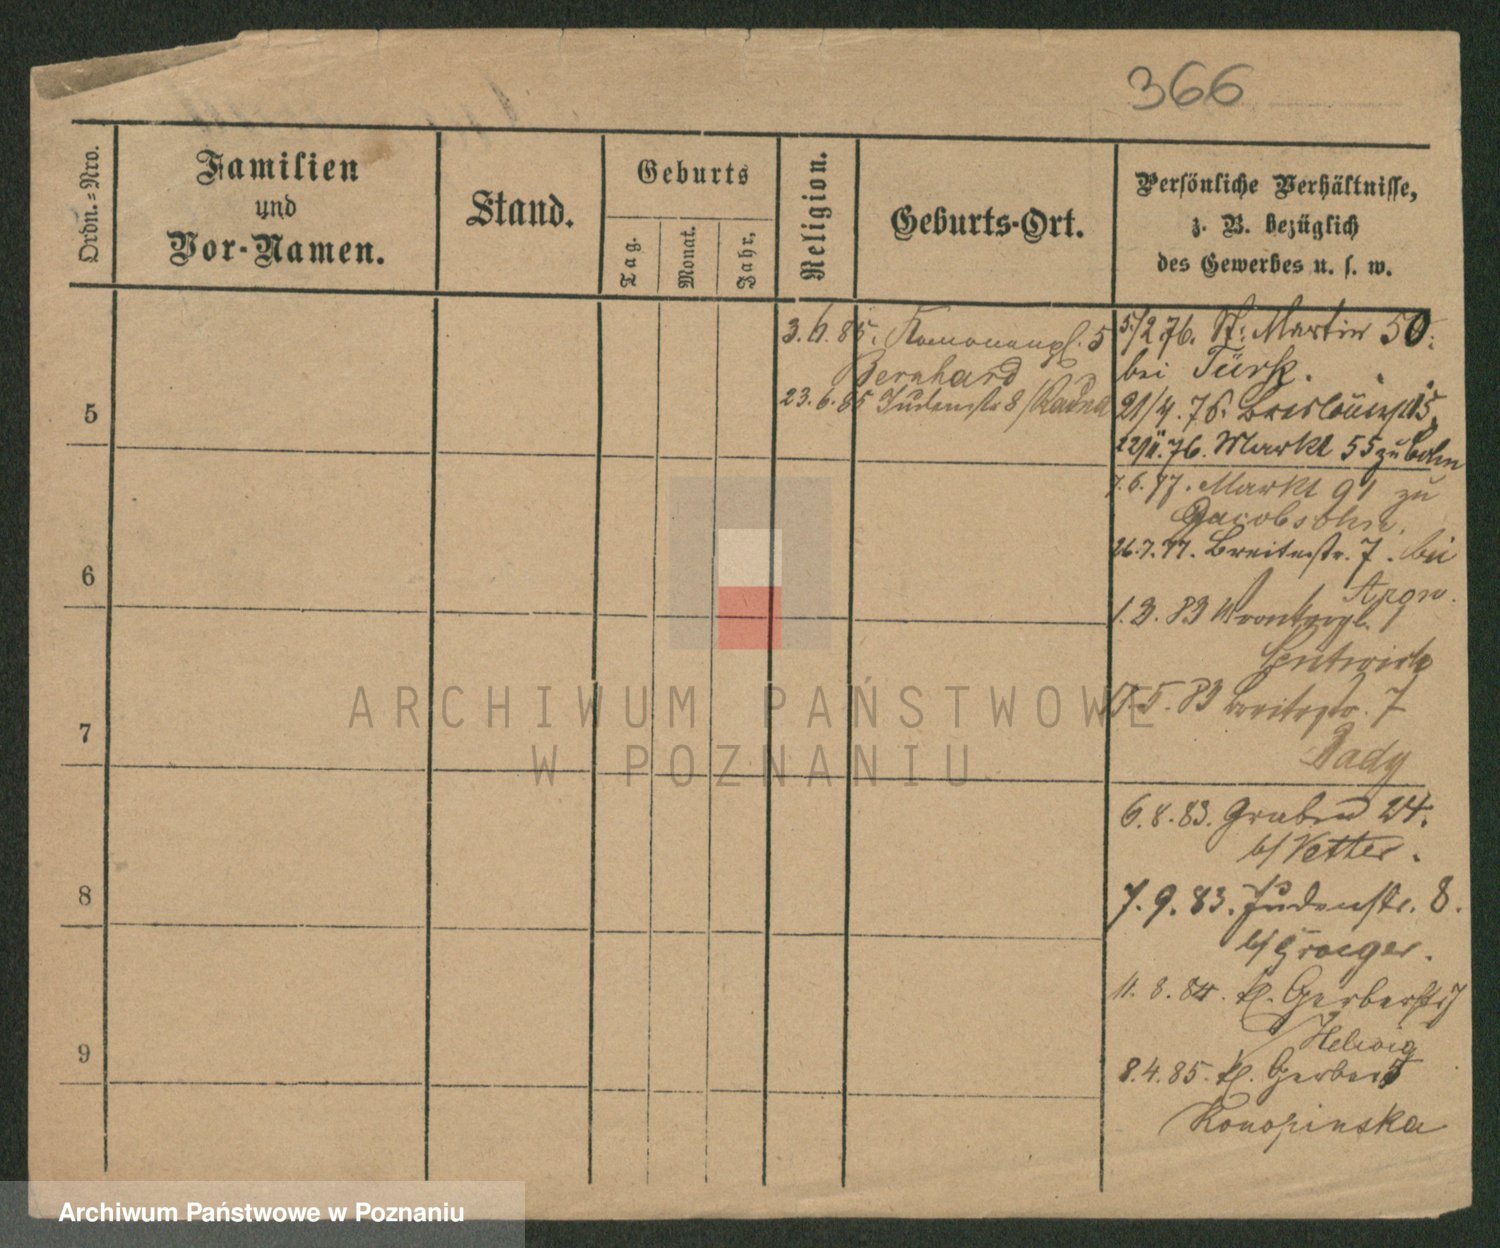 366
Ordn.=Nro.
Familien
und
Vor-Namen.
Stand.
Geburts
Tag.
Monat.
Jahr,
Religion.
Geburts-Ort.
Persönliche Verhältnisse,
z. B. bezüglich
des Gewerbes u. s. w.
3.6.85.
Bernhard
23.6.85 Judenstr 8/
5/2 76. St. Martin 50.
bei Türk.
21/4. 76.
76. Markt 55 zu
7.6.77. Markt 91 zu
Jacobsohn.
26.7.77. Breitestr. 7. bei
1.3.83
5.83 Breitestr. 7
6.8.83. Graben 24.
b/ Vetter.
7.9.83. Judenstr. 8.
b/
11.8.84. kl. Gerberstr 7
/Helwig
8.4.85. kl. Gerber 5
Konopinska
5
6
7
8
9
ARCHIWUM PAŃSTWOWE
W POZNANIU
Archiwum Państwowe w Poznaniu